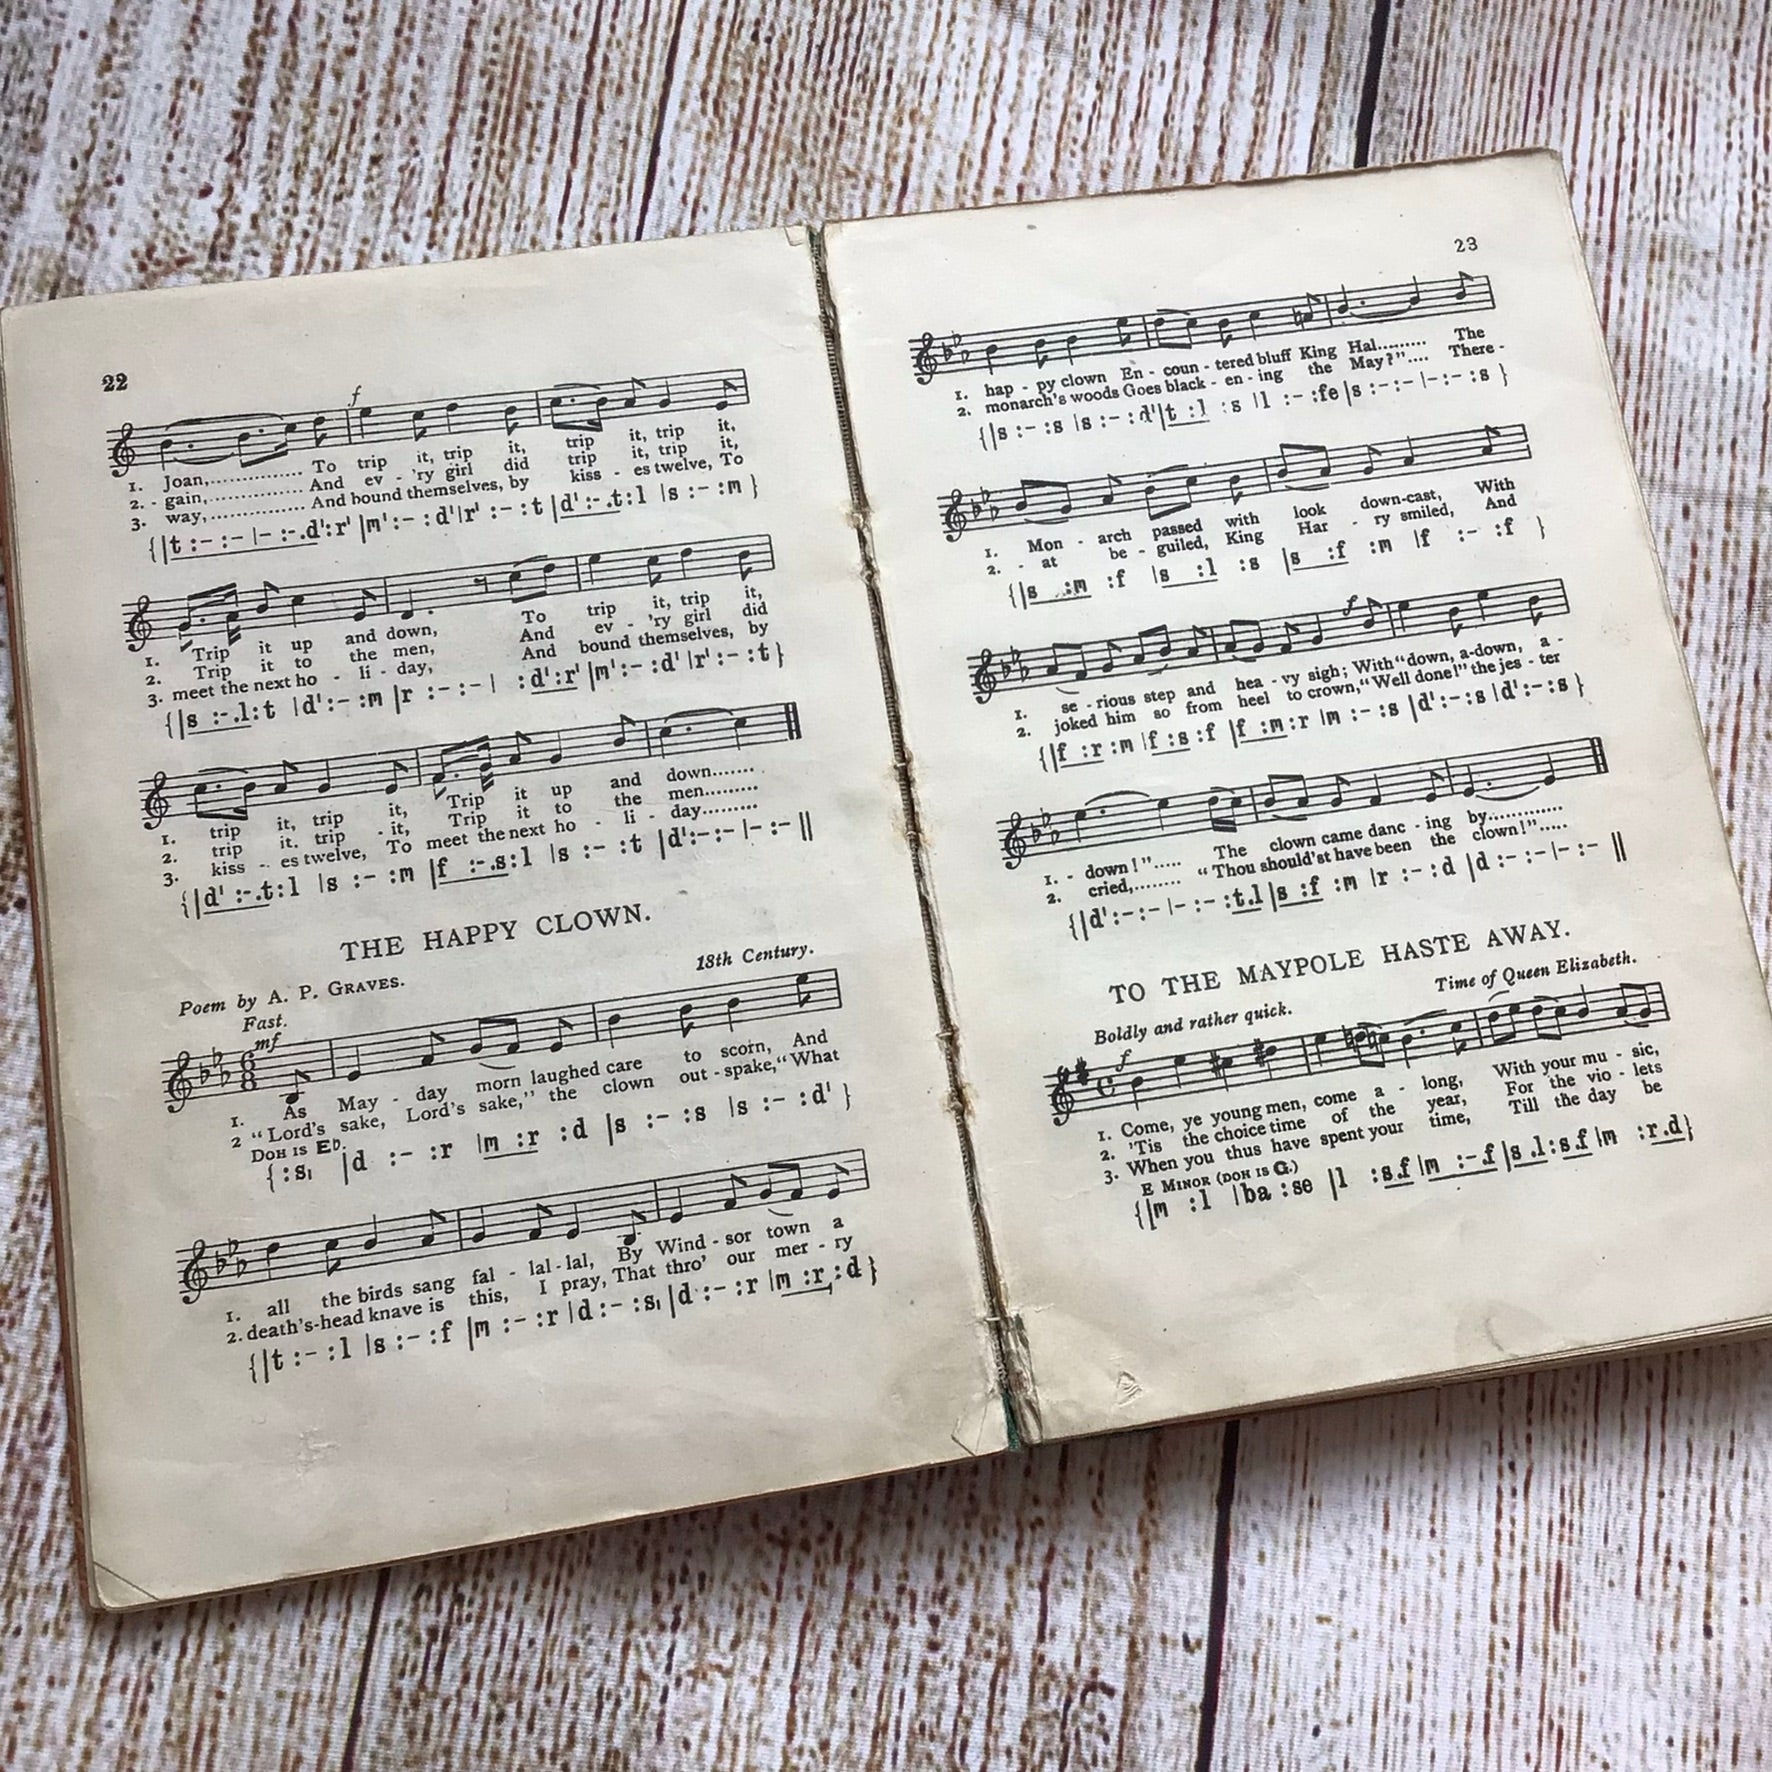 22
f
1. Joan,.............. To trip it, trip it, trip it, trip it,
2. - gain,.............. And ev - 'ry girl did trip it, trip it,
3. way,.............. And bound themselves, by kiss - es twelve, To
{|t :- :- |- :-.d':r' |m' :- :d'|r' :- :t |d' :-.t:l |s :- :m }
1. Trip it up and down, To trip it, trip it,
2. Trip it to the men, And ev - 'ry girl did
3. meet the next ho - li - day, And bound themselves, by
{|s :-.l:t |d' :- :m |r :- :- | :d':r' |m' :- :d' |r' :- :t }
1. trip it, trip it, Trip it up and down.......
2. trip it. trip - it, Trip it to the men.........
3. kiss - es twelve, To meet the next ho - li - day.........
{|d' :-.t:l |s :- :m |f :-.s:l |s :- :t |d' :- :- |- :- ||
THE HAPPY CLOWN.
18th Century.
Poem by A. P. GRAVES.
Fast.
mf
6
8
1. As May - day morn laughed care to scorn, And
2 "Lord's sake, Lord's sake," the clown out - spake, "What
DOH IS E♭.
{ :s, |d :- :r |m :r :d |s :- :s |s :- :d' }
1. all the birds sang fal - lal - lal, By Wind - sor town a
2. death's-head knave is this, I pray, That thro' our mer - ry
{|t :- :l |s :- :f |m :- :r |d :- :s, |d :- :r |m :r :d }
23
1. hap - py clown En - coun - tered bluff King Hal......... The
2. monarch's woods Goes black - en - ing the May?".... There -
{|s :- :s |s :- :d'|t :l :s |l :- :fe |s :- :- |- :- :s }
1. Mon - arch passed with look down-cast, With
2. - at be - guiled, King Har - ry smiled, And
{|s :m :f |s :l :s |s :f :m |f :- :f }
f
1. se - rious step and hea - vy sigh; With "down, a-down, a -
2. joked him so from heel to crown, "Well done!" the jes - ter
{|f :r :m |f :s :f |f :m :r |m :- :s |d' :- :s |d' :- :s }
1. - down!"..... The clown came danc - ing by............
2. cried,........ "Thou should'st have been the clown!".....
{|d' :- :- |- :- :t.l |s :f :m |r :- :d |d :- :- |- :- ||
TO THE MAYPOLE HASTE AWAY.
Time of Queen Elizabeth.
Boldly and rather quick.
f
1. Come, ye young men, come a - long, With your mu - sic,
2. 'Tis the choice time of the year, For the vio - lets
3. When you thus have spent your time, Till the day be
E MINOR (DOH IS G.)
{|m :l |ba :se |l :s.f |m :-.f |s.l:s.f |m :r.d }